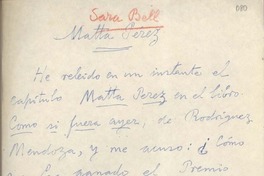 080
Sara Bell
Matta Perez
He releido en un instante el
capítulo Matta Perez en el libro
Como si fuera ayer, de Rodríguez
Mendoza, y me acuso: ¿Cómo
ganado el Premio